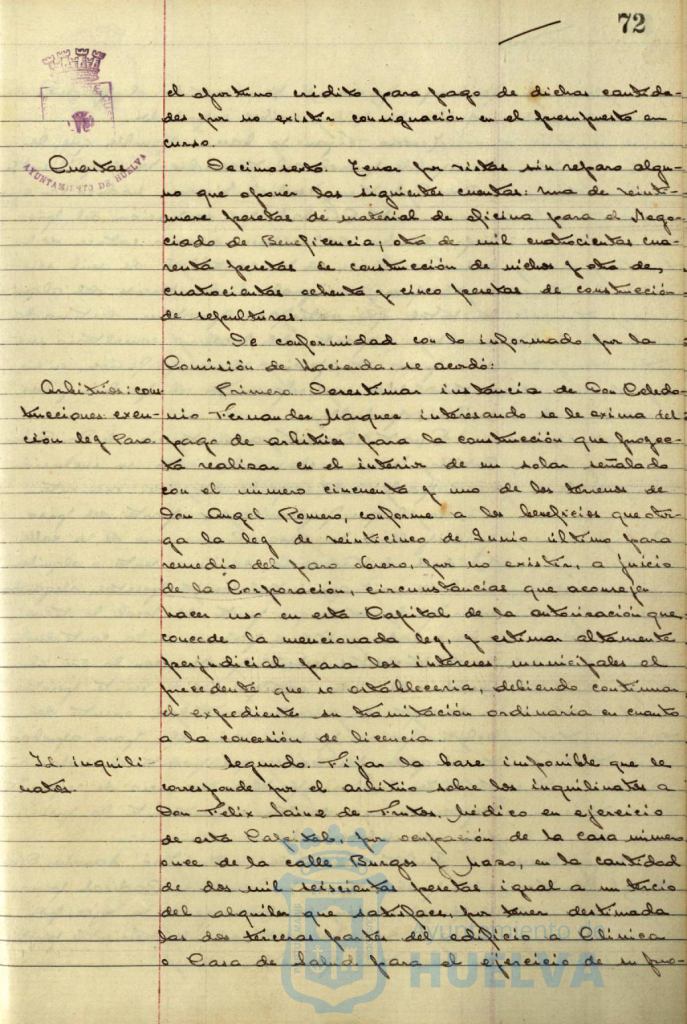 72
el oportuno crédito para pago de dichas cantida-
des por no existir consignación en el presupuesto en
curso.
Cuentas
AYUNTAMIENTO DE HUELVA
Decimosexto. Tener por vistas sin reparo algu-
no que oponer las siguientes cuentas: una de veinti-
nueve pesetas de material de oficina para el Nego-
ciado de Beneficencia, otra de mil cuatrocientas cua-
renta pesetas de construcción de nichos y otra de
cuatrocientas ochenta y cinco pesetas de construcción
de sepulturas.
De conformidad con lo informado por la
Comisión de Hacienda se acordó:
Arbitrios: cons-
trucciones exen-
ción ley Paro.
Primero. Desestimar instancia de Don Celedo-
nio Fernandez Marquez interesando se le exima del
pago de arbitrios para la construcción que proyec-
ta realizar en el interior de un solar señalado
con el número cincuenta y uno de los terrenos de
Don Angel Romero, conforme a los beneficios que otor-
ga la ley de veinticinco de Junio último para
remedio del paro obrero, por no existir, a juicio
de la Corporación, circunstancias que aconsejen
hacer uso en esta Capital de la autorización que
concede la mencionada ley, y estimar altamente
perjudicial para los intereses municipales el
precedente que se establecería, debiendo continuar
el expediente su tramitación ordinaria en cuanto
a la concesión de licencia.
Id. inquili-
natos.
Segundo. Fijar la base imponible que le
corresponde por el arbitrio sobre los inquilinatos a
Don Felix Sainz de Frutos, Médico en ejercicio
de esta Capital, por ocupación de la casa número
once de la calle Burgos y Mazo, en la cantidad
de dos mil seiscientas pesetas igual a un tercio
del alquiler que satisface, por tener destinada
las dos terceras partes del edificio a Clínica
o Casa de Salud para el ejercicio de su pro-
Ayuntamiento de
HUELVA